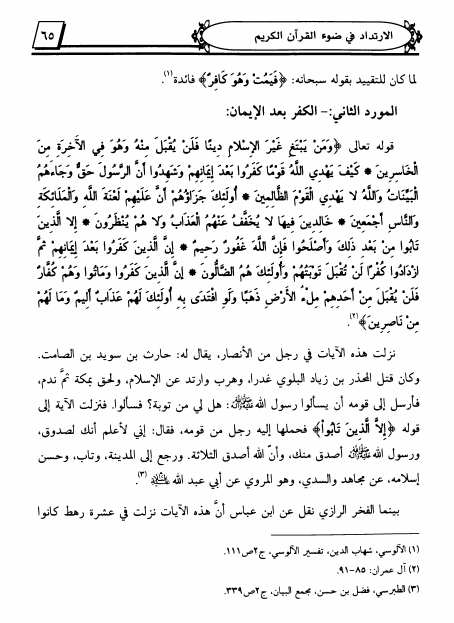 الارتداد في ضوء القرآن الكريم
٦٥
لما كان للتقييد بقوله سبحانه: ﴿فَيَمُتْ وَهُوَ كَافِرٌ﴾ فائدة(١).
المورد الثاني:- الكفر بعد الإيمان:
قوله تعالى ﴿وَمَنْ يَبْتَغِ غَيْرَ الإِسْلَامِ دِينًا فَلَنْ يُقْبَلَ مِنْهُ وَهُوَ فِي الآخِرَةِ مِنَ
الْخَاسِرِينَ * كَيْفَ يَهْدِي اللَّهُ قَوْمًا كَفَرُوا بَعْدَ إِيمَانِهِمْ وَشَهِدُوا أَنَّ الرَّسُولَ حَقٌّ وَجَاءَهُمُ
الْبَيِّنَاتُ وَاللَّهُ لَا يَهْدِي الْقَوْمَ الظَّالِمِينَ * أُولَئِكَ جَزَاؤُهُمْ أَنَّ عَلَيْهِمْ لَعْنَةَ اللَّهِ وَالْمَلَائِكَةِ
وَالنَّاسِ أَجْمَعِينَ * خَالِدِينَ فِيهَا لَا يُخَفَّفُ عَنْهُمُ الْعَذَابُ وَلَا هُمْ يُنْظَرُونَ * إِلَّا الَّذِينَ
تَابُوا مِنْ بَعْدِ ذَلِكَ وَأَصْلَحُوا فَإِنَّ اللَّهَ غَفُورٌ رَحِيمٌ * إِنَّ الَّذِينَ كَفَرُوا بَعْدَ إِيمَانِهِمْ ثُمَّ
ازْدَادُوا كُفْرًا لَنْ تُقْبَلَ تَوْبَتُهُمْ وَأُولَئِكَ هُمُ الضَّالُّونَ * إِنَّ الَّذِينَ كَفَرُوا وَمَاتُوا وَهُمْ كُفَّارٌ
فَلَنْ يُقْبَلَ مِنْ أَحَدِهِمْ مِلْءُ الأَرْضِ ذَهَبًا وَلَوِ افْتَدَى بِهِ أُولَئِكَ لَهُمْ عَذَابٌ أَلِيمٌ وَمَا لَهُمْ
مِنْ نَاصِرِينَ﴾(٢).
نزلت هذه الآيات في رجل من الأنصار، يقال له: حارث بن سويد بن الصامت.
وكان قتل المحذر بن زياد البلوي غدرا، وهرب وارتد عن الإسلام، ولحق بمكة ثمَّ ندم،
فأرسل إلى قومه أن يسألوا رسول الله ﷺ: هل لي من توبة؟ فسألوا. فنزلت الآية إلى
قوله ﴿إِلَّا الَّذِينَ تَابُوا﴾ فحملها إليه رجل من قومه، فقال: إني لأعلم أنك لصدوق،
ورسول الله ﷺ أصدق منك، وأنّ الله أصدق الثلاثة. ورجع إلى المدينة، وتاب، وحسن
إسلامه، عن مجاهد والسدي، وهو المروي عن أبي عبد الله (٣).
بينما الفخر الرازي نقل عن ابن عباس أنَّ هذه الآيات نزلت في عشرة رهط كانوا
(١) الآلوسي، شهاب الدين، تفسير الآلوسي، ج٢ص١١١.
(٢) آل عمران: ٨٥-٩١.
(٣) الطبرسي، فضل بن حسن، مجمع البيان، ج٢ص٣٣٩.